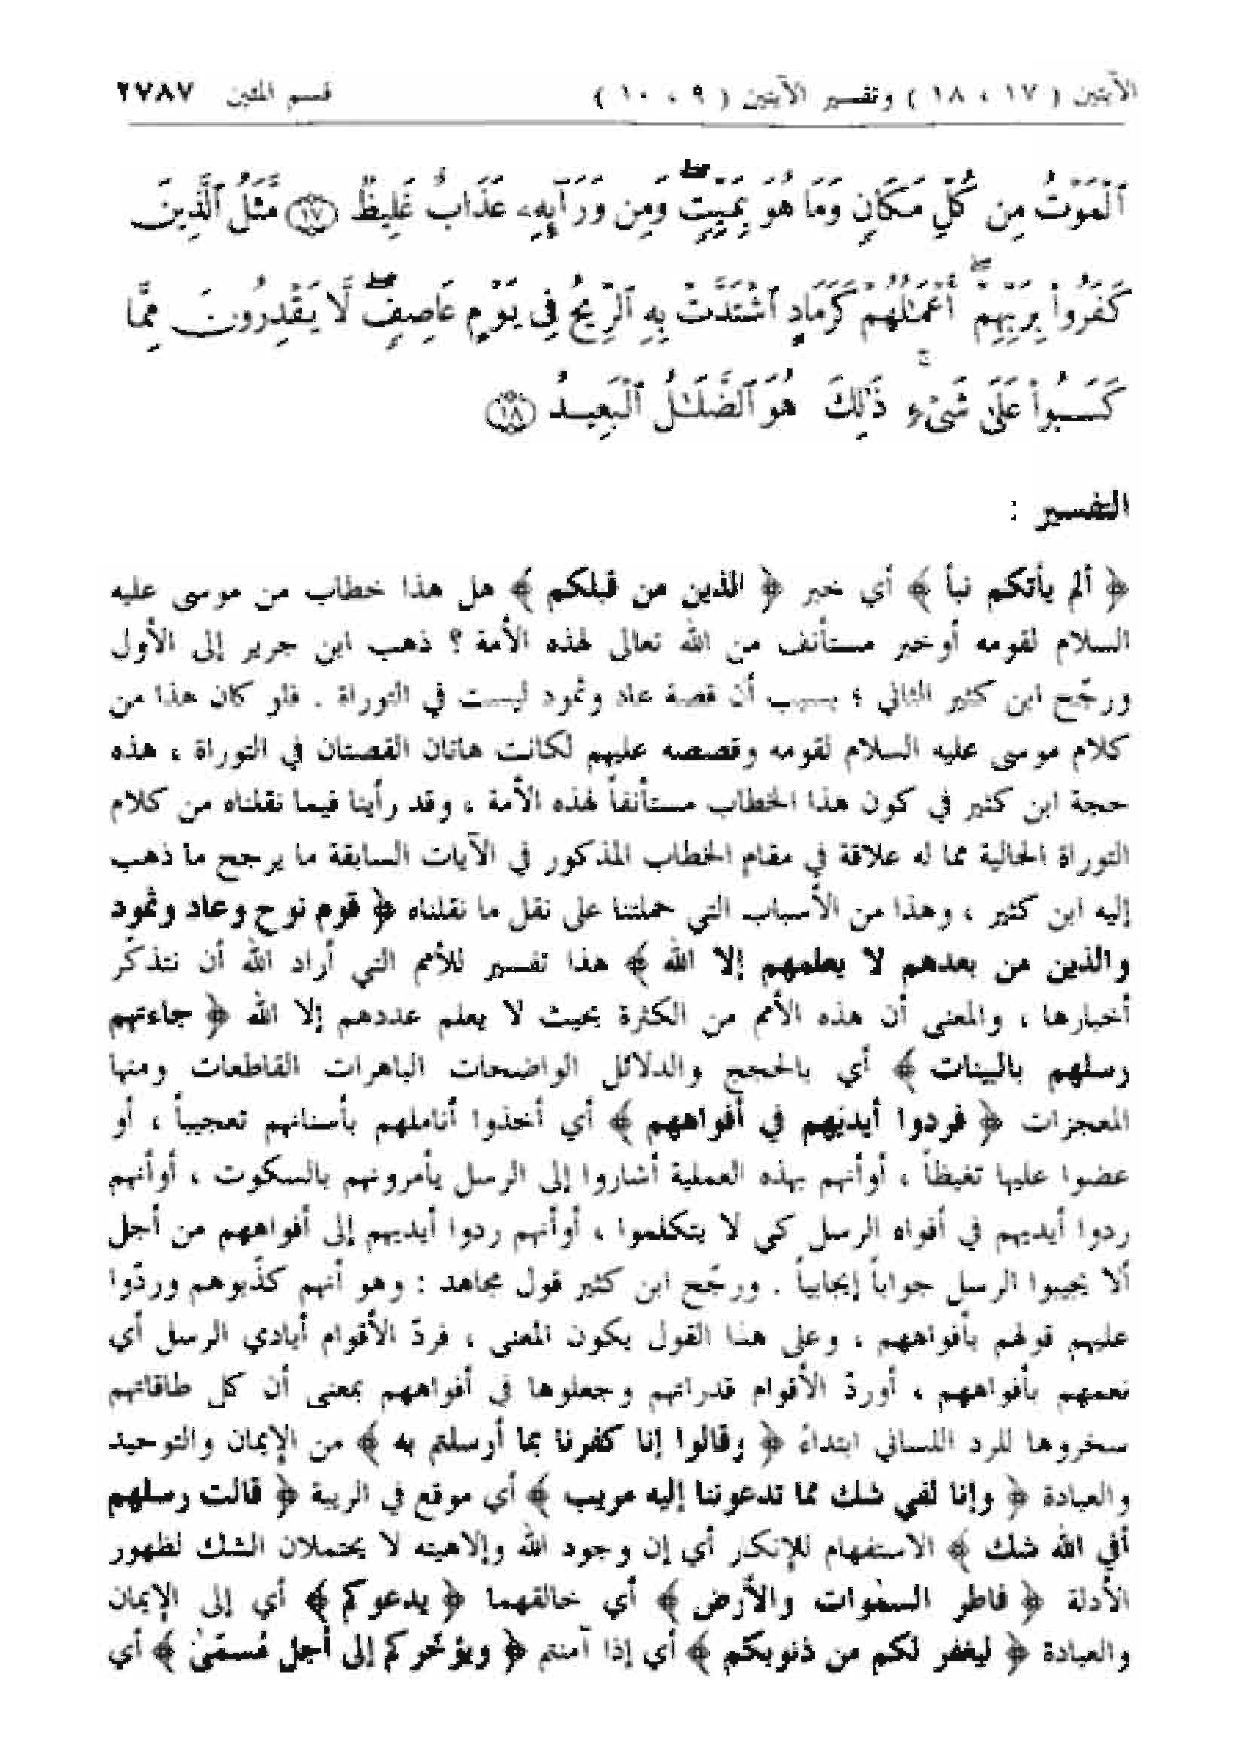 الآيتين ( ١٧ ، ١٨ ) وتفسير الآيتين ( ٩ ، ١٠ ) قسم المئين ٢٧٨٧
ٱلْمَوْتُ مِن كُلِّ مَكَانٍ وَمَا هُوَ بِمَيِّتٍۖ وَمِن وَرَآئِهِۦ عَذَابٌ غَلِيظٌ ۝١٧ مَّثَلُ ٱلَّذِينَ
كَفَرُوا۟ بِرَبِّهِمْۖ أَعْمَـٰلُهُمْ كَرَمَادٍ ٱشْتَدَّتْ بِهِ ٱلرِّيحُ فِى يَوْمٍ عَاصِفٍۖ لَّا يَقْدِرُونَ مِمَّا
كَسَبُوا۟ عَلَىٰ شَىْءٍۚ ذَٰلِكَ هُوَ ٱلضَّلَـٰلُ ٱلْبَعِيدُ ۝١٨
التفسير :
﴿ ألم يأتكم نبأ ﴾ أي خبر ﴿ الذين من قبلكم ﴾ هل هذا خطاب من موسى عليه
السلام لقومه أوخبر مستأنف من الله تعالى لهذه الأمة ؟ ذهب ابن جرير إلى الأول
ورجّح ابن كثير الثاني ؛ بسبب أن قصة عاد وثمود ليست في التوراة . فلو كان هذا من
كلام موسى عليه السلام لقومه وقصصه عليهم لكانت هاتان القصتان في التوراة ، هذه
حجة ابن كثير في كون هذا الخطاب مستأنفاً لهذه الأمة ، وقد رأينا فيما نقلناه من كلام
التوراة الحالية مما له علاقة في مقام الخطاب المذكور في الآيات السابقة ما يرجح ما ذهب
إليه ابن كثير ، وهذا من الأسباب التي حملتنا على نقل ما نقلناه ﴿ قوم نوح وعاد وثمود
والذين من بعدهم لا يعلمهم إلا الله ﴾ هذا تفسير للأمم التي أراد الله أن نتذكّر
أخبارها ، والمعنى أن هذه الأمم من الكثرة بحيث لا يعلم عددهم إلا الله ﴿ جاءتهم
رسلهم بالبينات ﴾ أي بالحجج والدلائل الواضحات الباهرات القاطعات ومنها
المعجزات ﴿ فردوا أيديهم في أفواههم ﴾ أي أخذوا أناملهم بأسنانهم تعجيباً ، أو
عضوا عليها تغيظاً ، أوأنهم بهذه العملية أشاروا إلى الرسل يأمرونهم بالسكوت ، أوأنهم
ردوا أيديهم في أفواه الرسل كي لا يتكلموا ، أوأنهم ردوا أيديهم إلى أفواههم من أجل
ألا يجيبوا الرسل جواباً إيجابياً . ورجّح ابن كثير قول مجاهد : وهو أنهم كذّبوهم وردّوا
عليهم قولهم بأفواههم ، وعلى هذا القول يكون المعنى ، فردّ الأقوام أيادي الرسل أي
نعمهم بأفواههم ، أوردّ الأقوام قدراتهم وجعلوها في أفواههم بمعنى أن كل طاقاتهم
سخروها للرد اللساني ابتداءً ﴿ وقالوا إنا كفرنا بما أرسلتم به ﴾ من الإيمان والتوحيد
والعبادة ﴿ وإنا لفي شك مما تدعوننا إليه مريب ﴾ أي موقع في الريبة ﴿ قالت رسلهم
أفي الله شك ﴾ الاستفهام للإنكار أي إن وجود الله وإلاهيته لا يحتملان الشك لظهور
الأدلة ﴿ فاطر السمٰوات والأرض ﴾ أي خالقهما ﴿ يدعوكم ﴾ أي إلى الإيمان
والعبادة ﴿ ليغفر لكم من ذنوبكم ﴾ أي إذا آمنتم ﴿ ويؤخركم إلى أجل مُسمّىٰ ﴾ أي